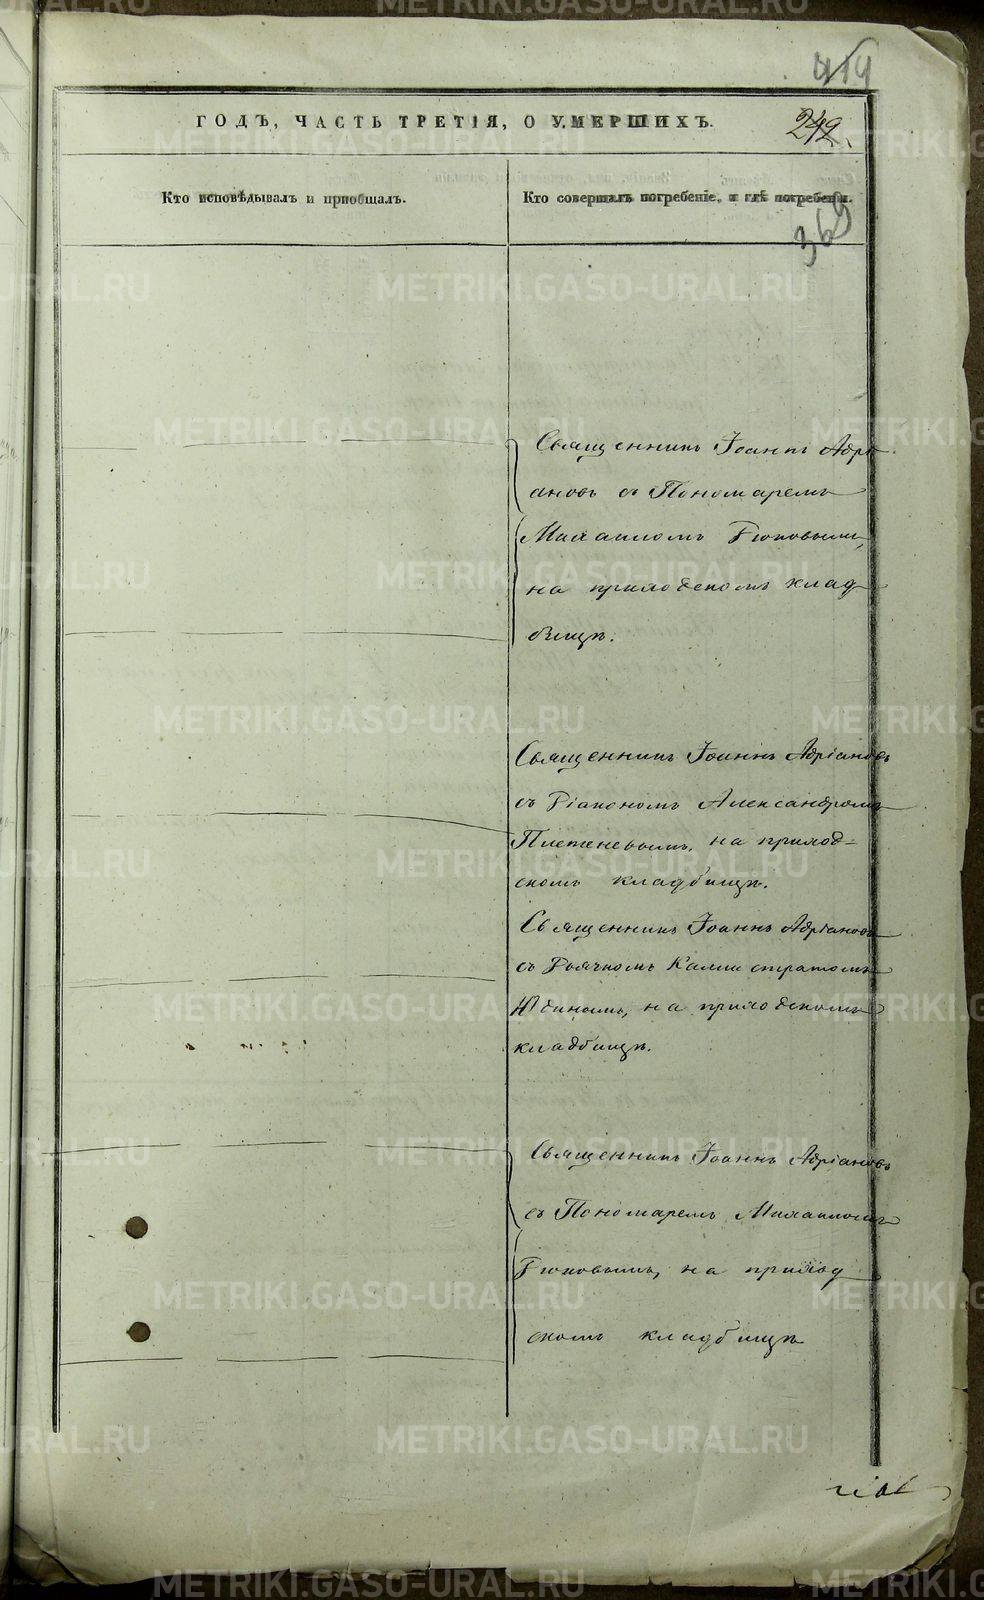 419
ГОДЪ, ЧАСТЬ ТРЕТІЯ, О УМЕРШИХЪ.
242.
Кто исповѣдывалъ и пріобщалъ.
Кто совершалъ погребеніе, и гдѣ погребены.
369
Священникъ Іоаннъ Адрі
ановъ съ Пономаремъ
Михаиломъ
на приходскомъ клад
бищѣ.
Священникъ Іоаннъ Адріановъ
съ Діакономъ Александромъ
Плетеневымъ, на приход=
скомъ кладбищѣ.
Священникъ Іоаннъ Адріановъ
съ Дьячкомъ Каллистратомъ
Юдинымъ, на приходскомъ
кладбищѣ.
Священникъ Іоаннъ Адріановъ
съ Пономаремъ Михаиломъ
на приход
скомъ кладбищѣ
METRIKI.GASO-URAL.RU